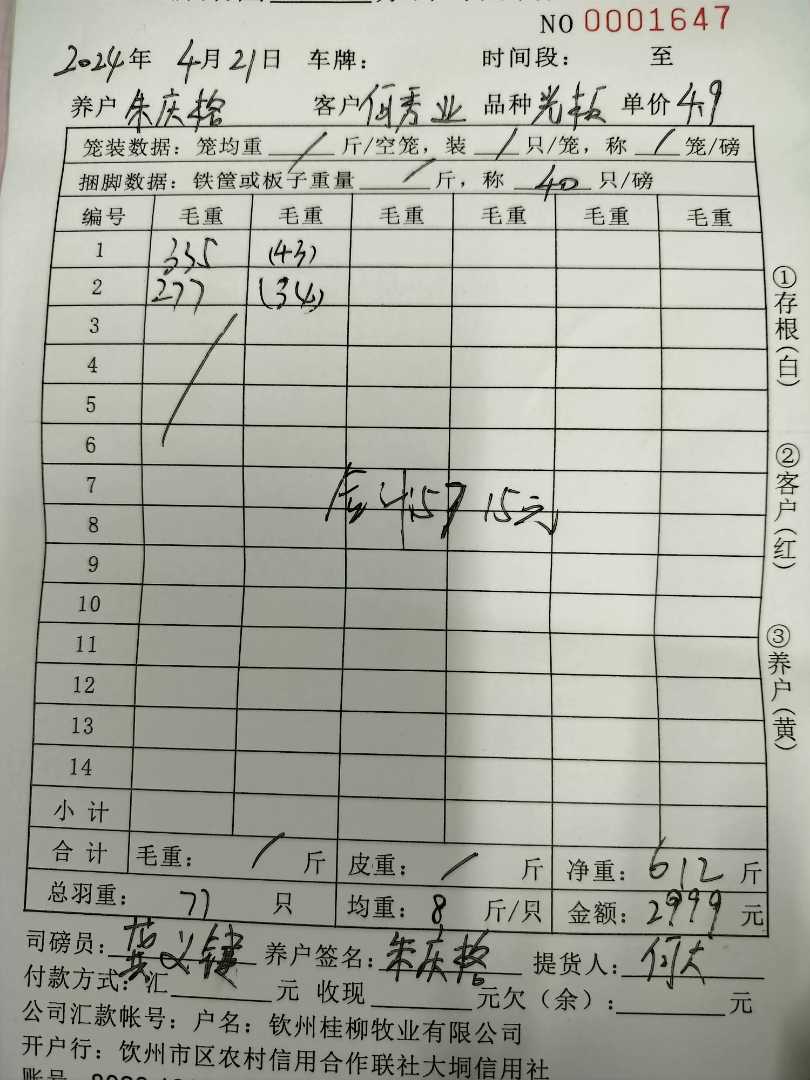 NO 0001647
2024年 4月21日 车牌： 时间段： 至
养户 朱庆格 客户 何秀业 品种 光板 单价 4.9
笼装数据：笼均重 / 斤/空笼，装 / 只/笼，称 / 笼/磅
捆脚数据：铁筐或板子重量 / 斤，称 40 只/磅
编号 毛重 毛重 毛重 毛重 毛重 毛重
1 335 (43)
2 277 (34)
3
4
5
6
7
15元
8
9
10
11
12
13
14
小计
合计 毛重： / 斤 皮重： / 斤 净重：612 斤
总羽重： 77 只 均重：8 斤/只 金额：2999 元
司磅员： 养户签名：朱庆格 提货人：
付款方式：汇 元 收现 元欠（余）： 元
公司汇款帐号：户名：钦州桂柳牧业有限公司
开户行：钦州市区农村信用合作联社大垌信用社
①存根（白）
②客户（红）
③养户（黄）